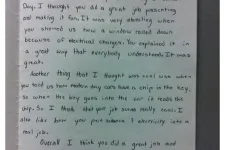 Day. I thought you did a great job presenting
and making it fun. It was very interesting when
you showed us how a window rolled down
because of electrical charges. You explained it in
a great way that everybody understands. It was
great.
Another thing that I thought was cool was when
you told us how modern day cars have a chip in the key,
so when the key goes into the car it reads the
chip. So I think that your job seems really cool. I
also like how you put science & into a
real job.
Overall I think you did a great job and